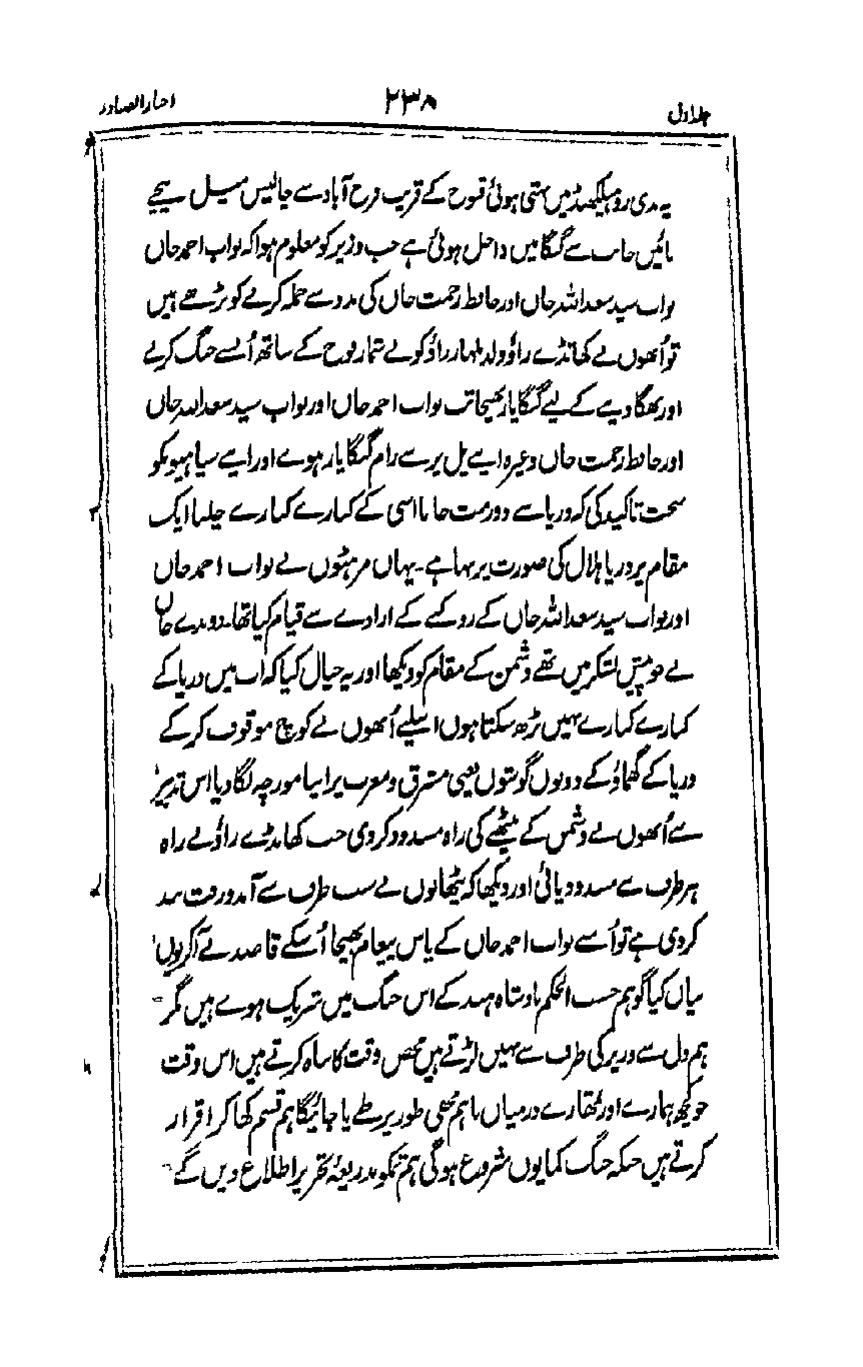 جلد اول
۲۳۸
اخبار الصنادید
یہ ندی روہیلکھنڈ میں بہتی ہوئی قنوج کے قریب فرخ آباد سے چالیس میل نیچے
بائیں جانب سے گنگا میں داخل ہوئی ہے جب وزیر کو معلوم ہوا کہ نواب احمد خاں
نواب سید سعد اللہ خاں اور حافظ رحمت خاں کی مدد سے حملہ کرنے کو بڑھے ہیں
تو اُنھوں نے کھانڈے راؤ ولد ملہار راؤ کو بے شمار فوج کے ساتھ اُنسے جنگ کرنے
اور بھگا دینے کے لیے گنگا پار بھیجا تب نواب احمد خاں اور نواب سید سعد اللہ خاں
اور حافظ رحمت خاں وغیرہ اپنے پل پر سے رام گنگا پار ہوے اور اپنے سپاہیونکو
سخت تاکید کی کہ دریا سے دور مت جانا اسی کے کنارے کنارے چلنا ایک
مقام پر دریا ہلال کی صورت پر بہا ہے۔ یہاں مرہٹوں نے نواب احمد خاں
اور نواب سید سعد اللہ خاں کے روکنے کے ارادے سے قیام کیا تھا۔ دوندے خاں
نے جو پیش لشکر میں تھے دشمن کے مقام کو دیکھا اور یہ خیال کیا کہ اب میں دریا کے
کنارے کنارے نہیں بڑھ سکتا ہوں اسلیے اُنھوں نے کوچ موقوف کر کے
دریا کے گھماؤ کے دونوں گوشوں یعنی مشرق و مغرب پر اپنا مورچہ لگا دیا اس تدبیر
سے اُنھوں نے دشمن کے ہٹنے کی راہ مسدود کر دی جب کھانڈے راؤ نے راہ
ہر طرف سے مسدود پائی اور دیکھا کہ پٹھانوں نے سب طرف سے آمد و رفت بند
کر دی ہے تو اُسنے نواب احمد خاں کے پاس پیغام بھیجا اُسکے قاصد نے آکر یوں
بیان کیا گو ہم حسب الحکم بادشاہ ہند کے اس جنگ میں شریک ہوے ہیں مگر
ہم دل سے وزیر کی طرف سے نہیں لڑتے ہیں محض وقت کا نباہ کرتے ہیں اس وقت
جو کچھ ہمارے اور تمھارے درمیاں باہم مخفی طور پر طے پا جائیگا ہم قسم کھا کر اقرار
کرتے ہیں جبکہ جنگ کمایوں شروع ہوگی ہم تمکو بذریعۂ تحریر اطلاع دیں گے